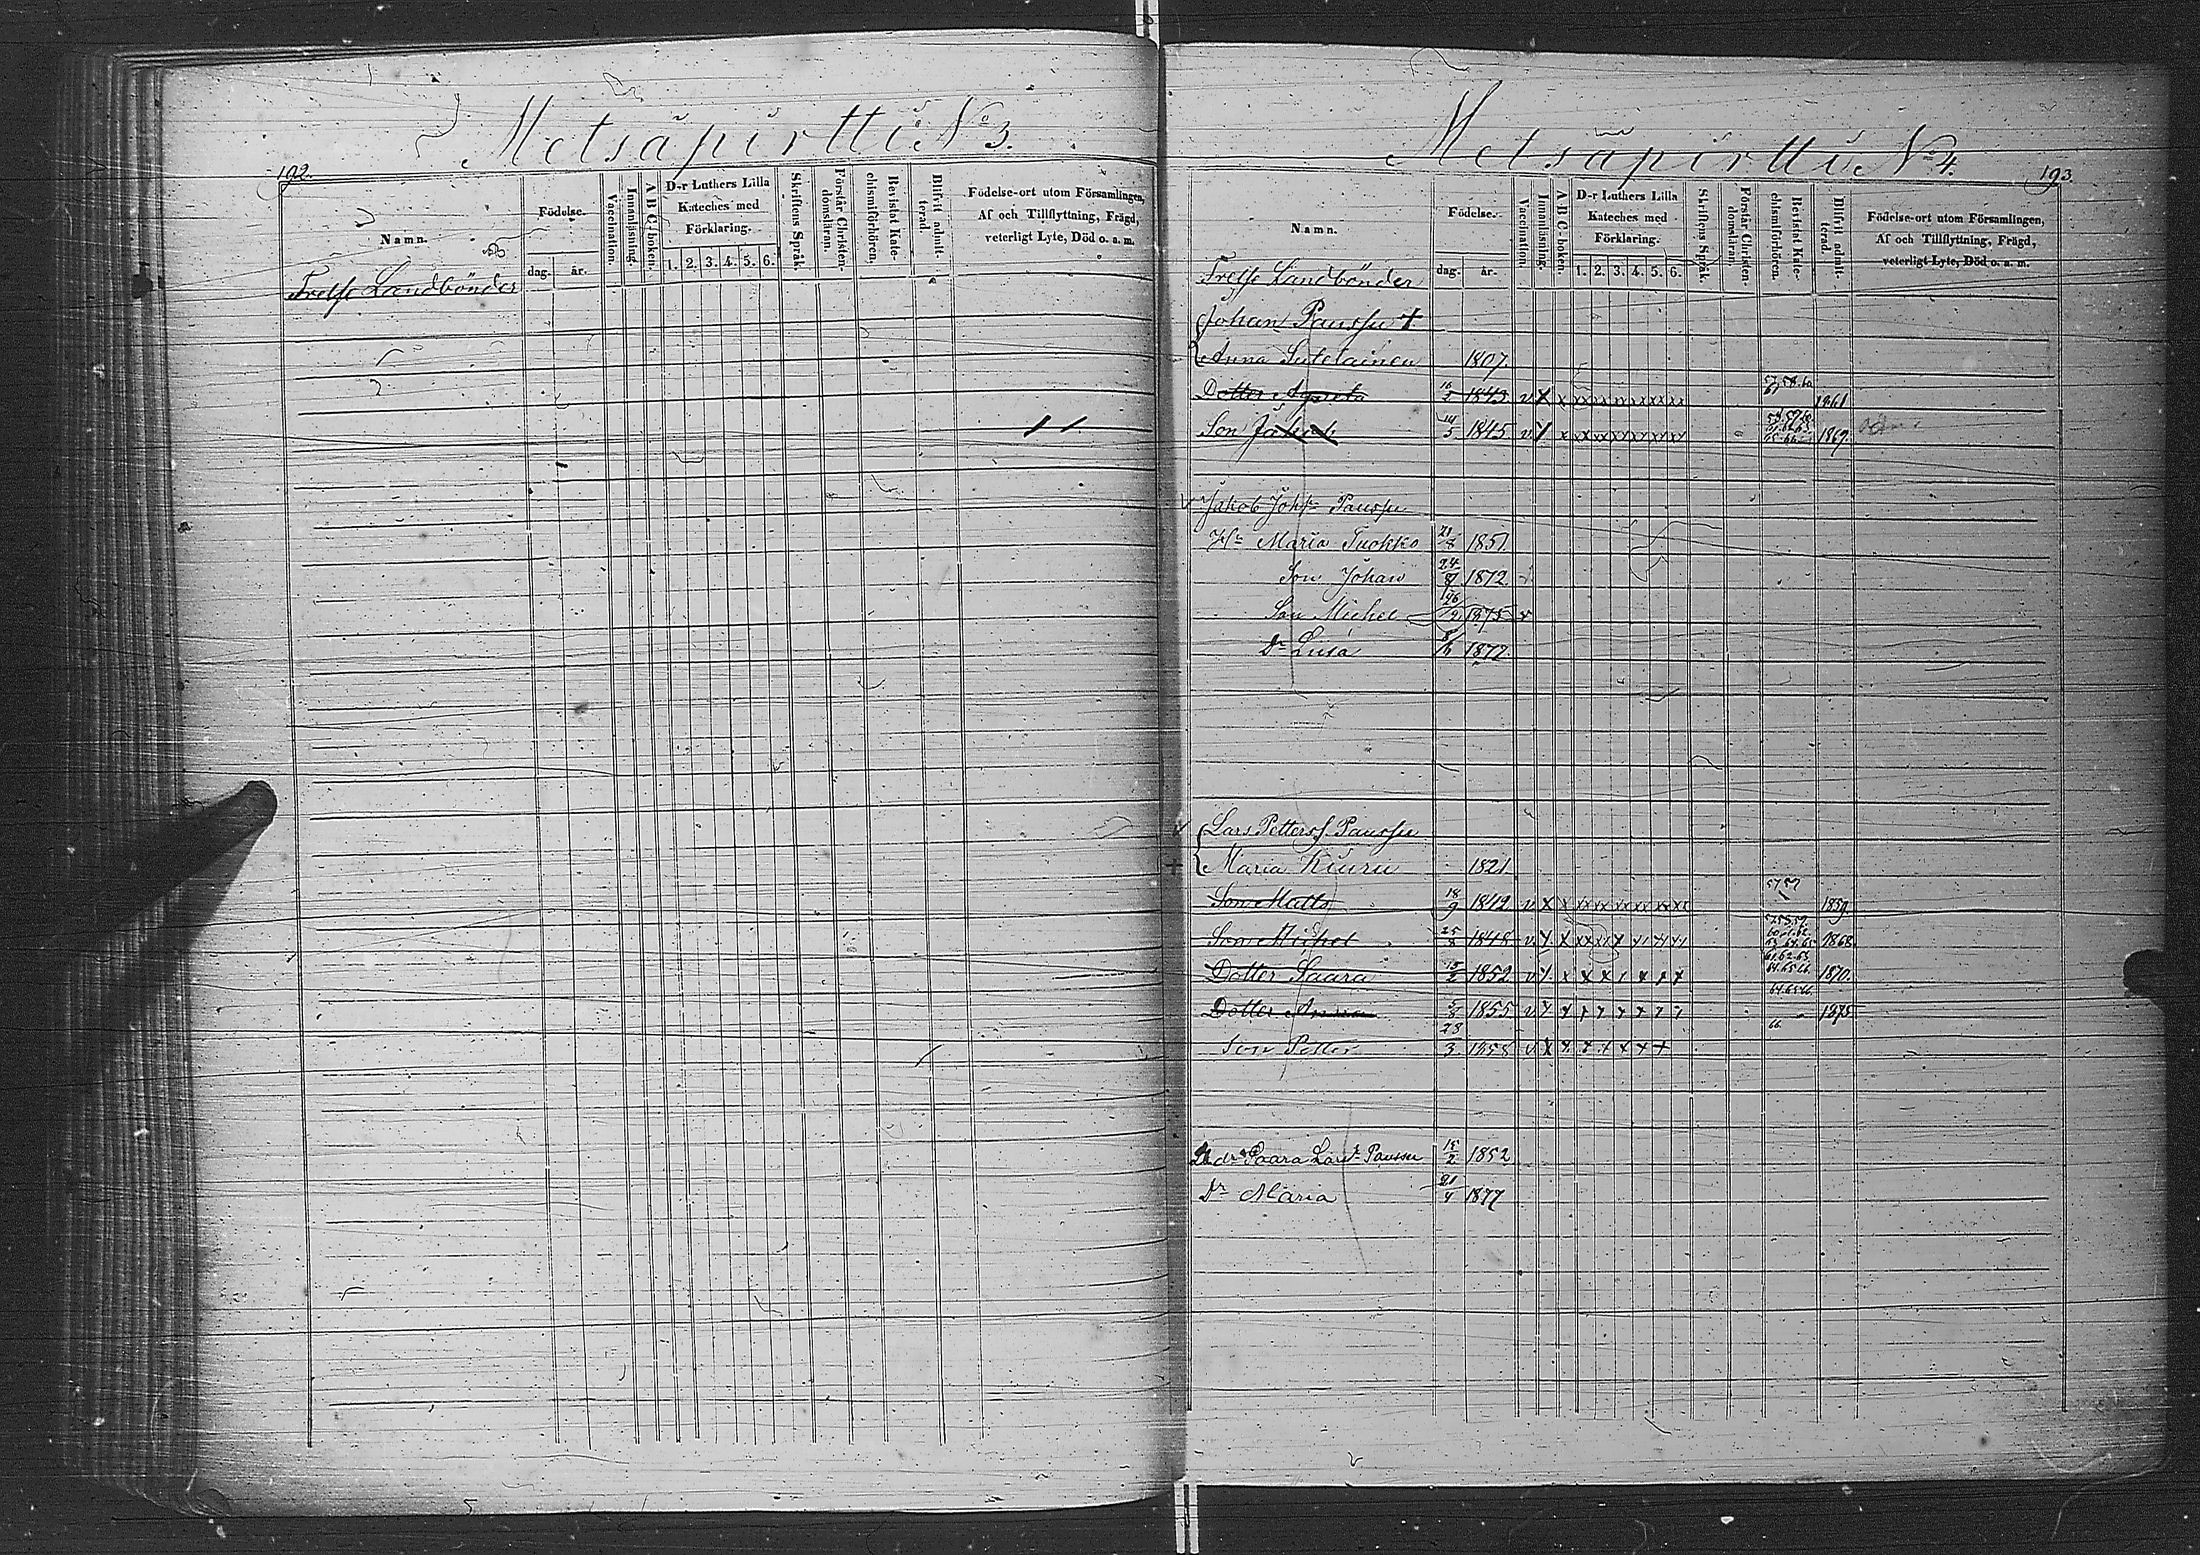 Metsäpirtti No 3.
192.
Namn.
Födelse.
dag.
år.
Vaccination.
Innanläsning.
A B C-boken.
D-r Luthers Lilla
Kateches med
Förklaring.
1. 2. 3. 4. 5. 6.
Skriftens Språk.
Förstår Christen-
domsläran.
Bevistat Kate-
chismiförhören.
Blifvit admit-
terad.
Födelse-ort utom Församlingen,
Af och Tillflyttning, Frägd,
veterligt Lyte, Död o. a. m.
Frelse Landbönder
Metsäpirtti No 4.
193.
Namn.
Födelse.
dag.
år.
Vaccination.
Innanläsning.
A B C-boken.
D-r Luthers Lilla
Kateches med
Förklaring.
1. 2. 3. 4. 5. 6.
Skriftens Språk.
Förstår Christen-
domsläran.
Bevistat Kate-
chismiförhören.
Blifvit admit-
terad.
Födelse-ort utom Församlingen,
Af och Tillflyttning, Frägd,
veterligt Lyte, Död o. a. m.
Frelse Landbönder
Johan Paussu +
Anna Sutelainen 1807.
Dotter Agneta 1843 v x x xxxxxxxxxxx 1861
Son Jakob 14/5 1845 v x xxxxxxxxxxx 1867.
Jakob Johs Paussu
Hu Maria Tuokko 21/8 1851.
Son Johan 24/8 1872
Son Michel 1875 v
Dr Lusa 1877
Lars Petterss. Paussu
+ Maria Kiuru 1821
Son Matts 18/9 1842 v x x xxxxxxxxxxx 57 59 1859.
Son Michel 25/8 1848 v x x 1868
Dotter Saara 15/2 1852 v x x x x x x x x 1870.
Dotter Anna 1855 v x x x x x x x x 64.65.66. 1875
Son Petter 28/3 1858 v x x x x x x x 66
dr Saara Larsd. Paussu 15/2 1852
Dr Maria 21/4 1877